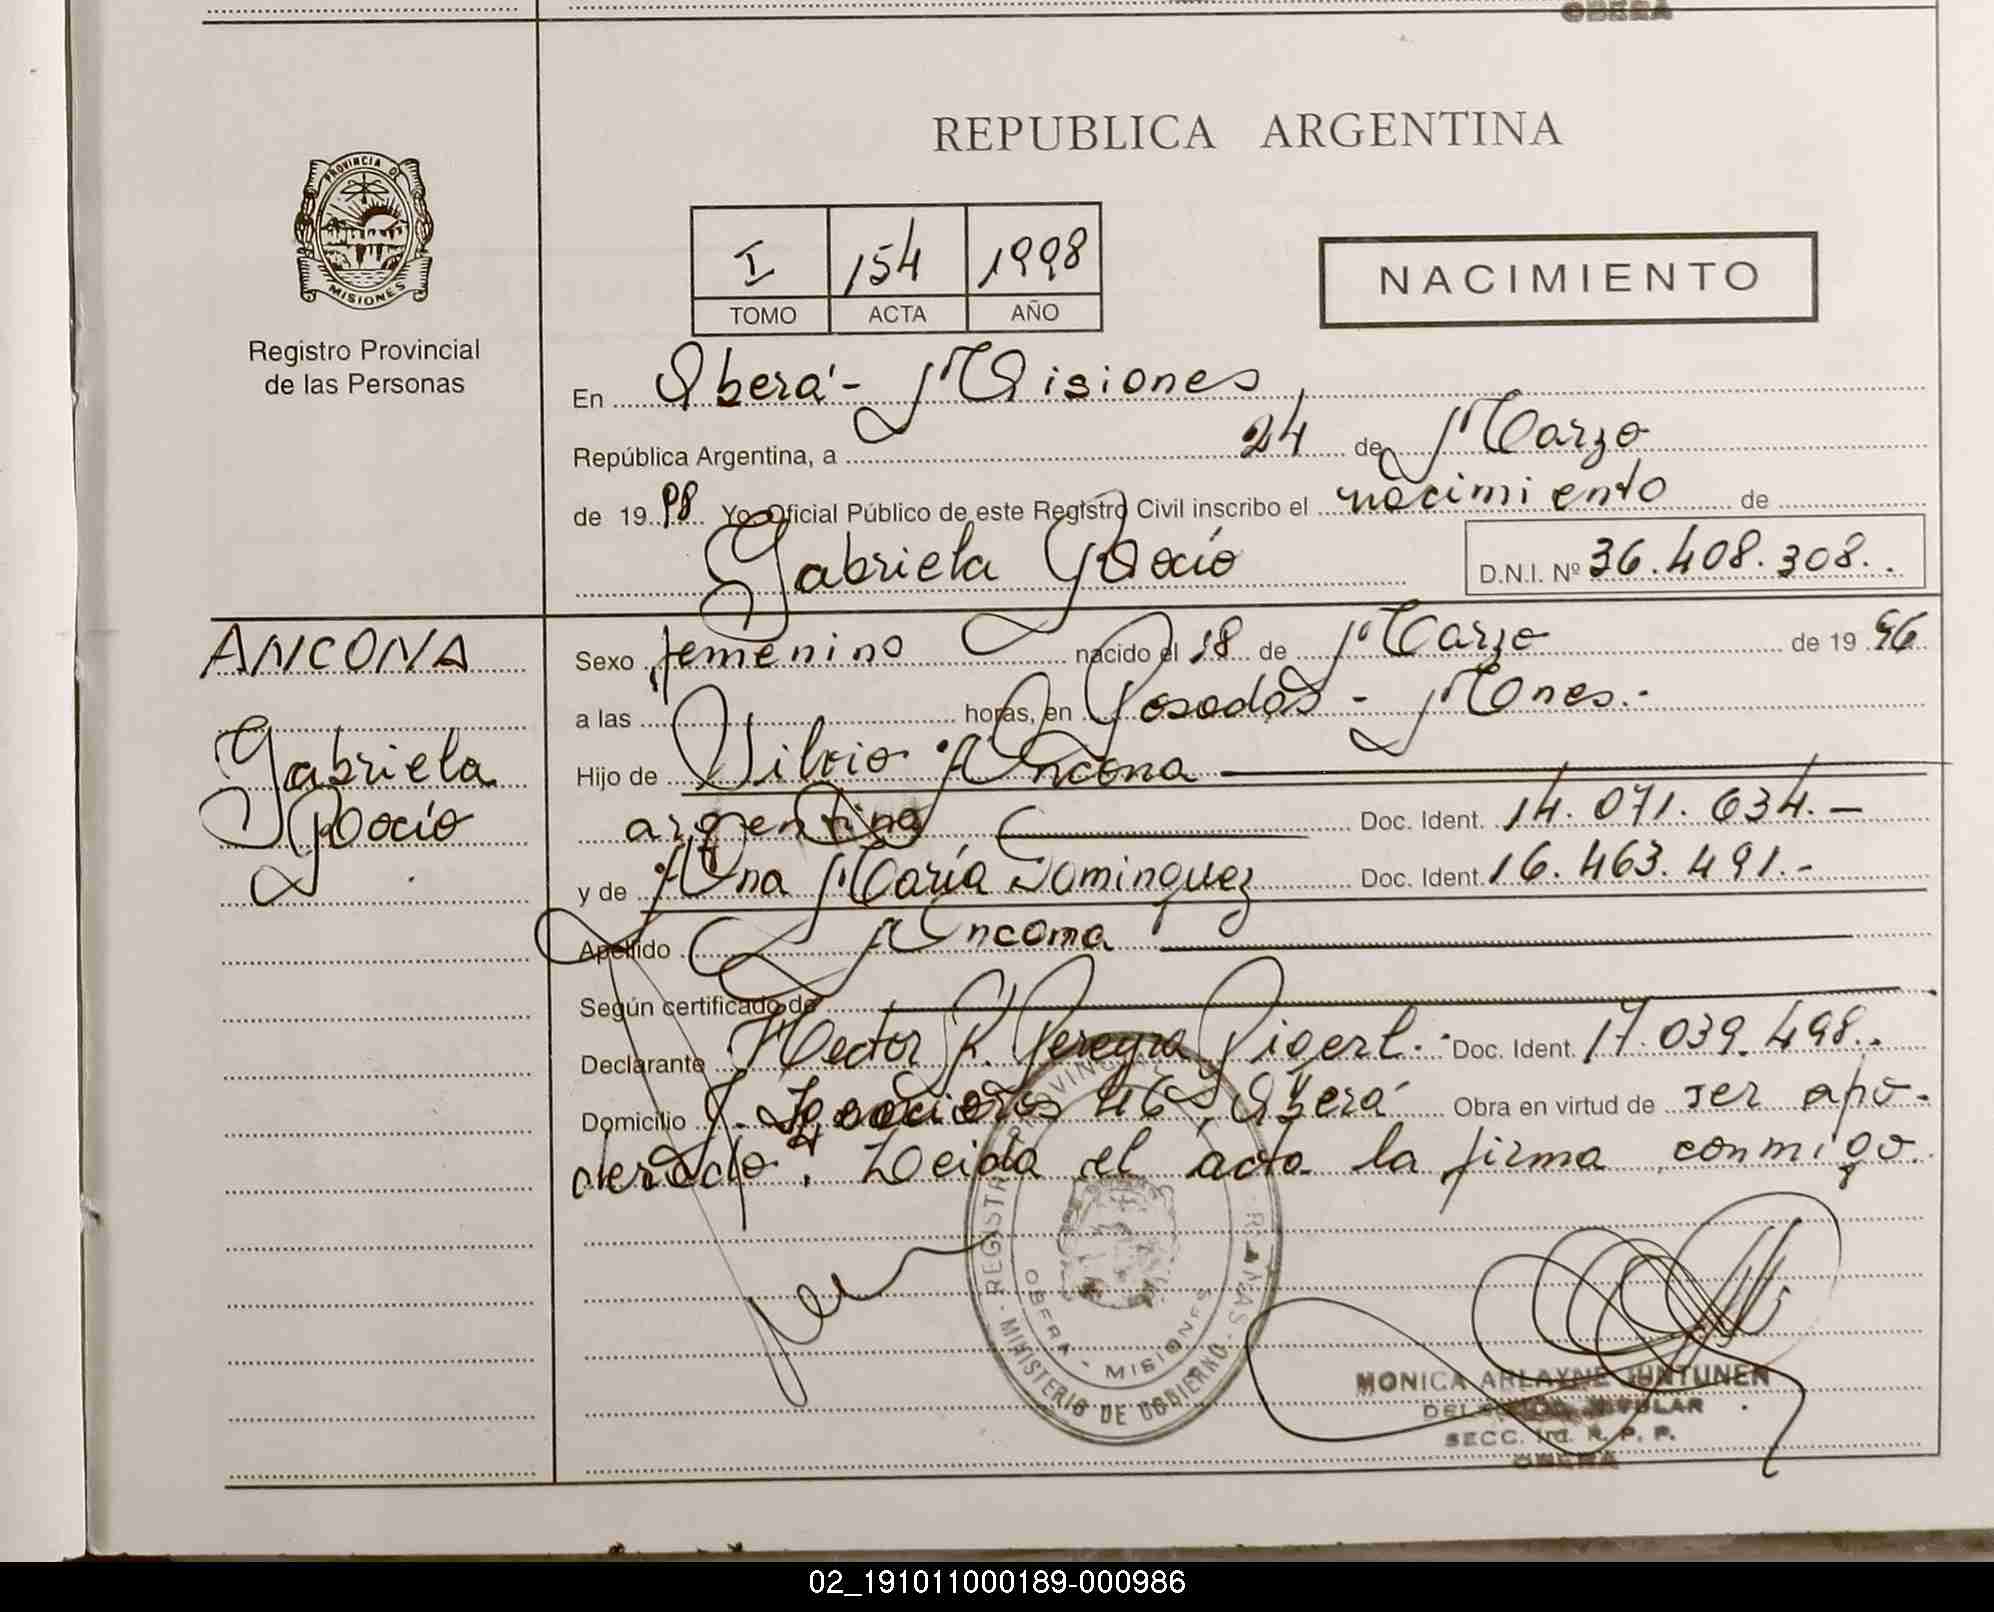 OBERA
REPUBLICA ARGENTINA
PROVINCIA DE
MISIONES
Registro Provincial
de las Personas
I 154 1998
TOMO ACTA AÑO
NACIMIENTO
En Oberá - Misiones
República Argentina, a 24 de Marzo
de 1998 Yo Oficial Público de este Registro Civil inscribo el nacimiento de
Gabriela Rocío D.N.I. Nº 36.408.308..
ANCONA
Gabriela
Rocío
Sexo femenino nacido el 18 de Marzo de 19 96
a las horas, en Posadas - Mnes.
Hijo de Silvio Ancona
argentino Doc. Ident. 14.071.634.-
y de Ana María Dominguez Doc. Ident. 16.463.491.-
Apellido Ancona
Según certificado de
Declarante Hector R. Pereyra Pigerl. Doc. Ident. 17.039.498..
Domicilio 46, Oberá Obra en virtud de ser apo-
derado. Leida el acta la firma conmigo.
REGISTRO PROVINCIAL
OBERA - MISIONES
MINISTERIO DE GOBIERNO
MONICA ARLAYNE JUNTUNEN
TITULAR
SECC. 1ra. R. P. P.
OBERA
02_191011000189-000986